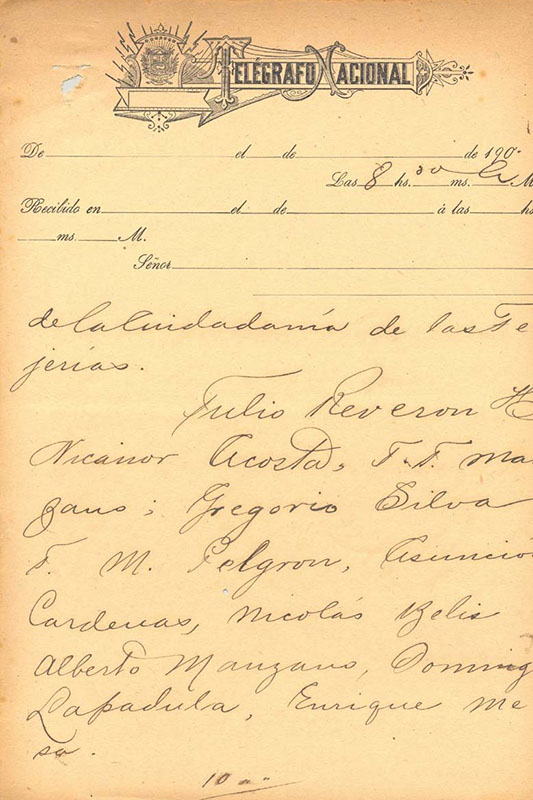 TELÉGRAFO NACIONAL
De el de de 190
Las 8 hs. 30 ms. a M
Recibido en el de á las hs
ms. M.
Señor
de la Ciudadanía de las Te
jerías.
Julio Reveron H
Nicanor Acosta, F. F. Ma
zano; Gregorio Silva
F. M. Pelgron, Asunció
Cardenas, Nicolás Belis
Alberto Manzano, Doming
Lapadula, Enrique Me
sa.
10 a